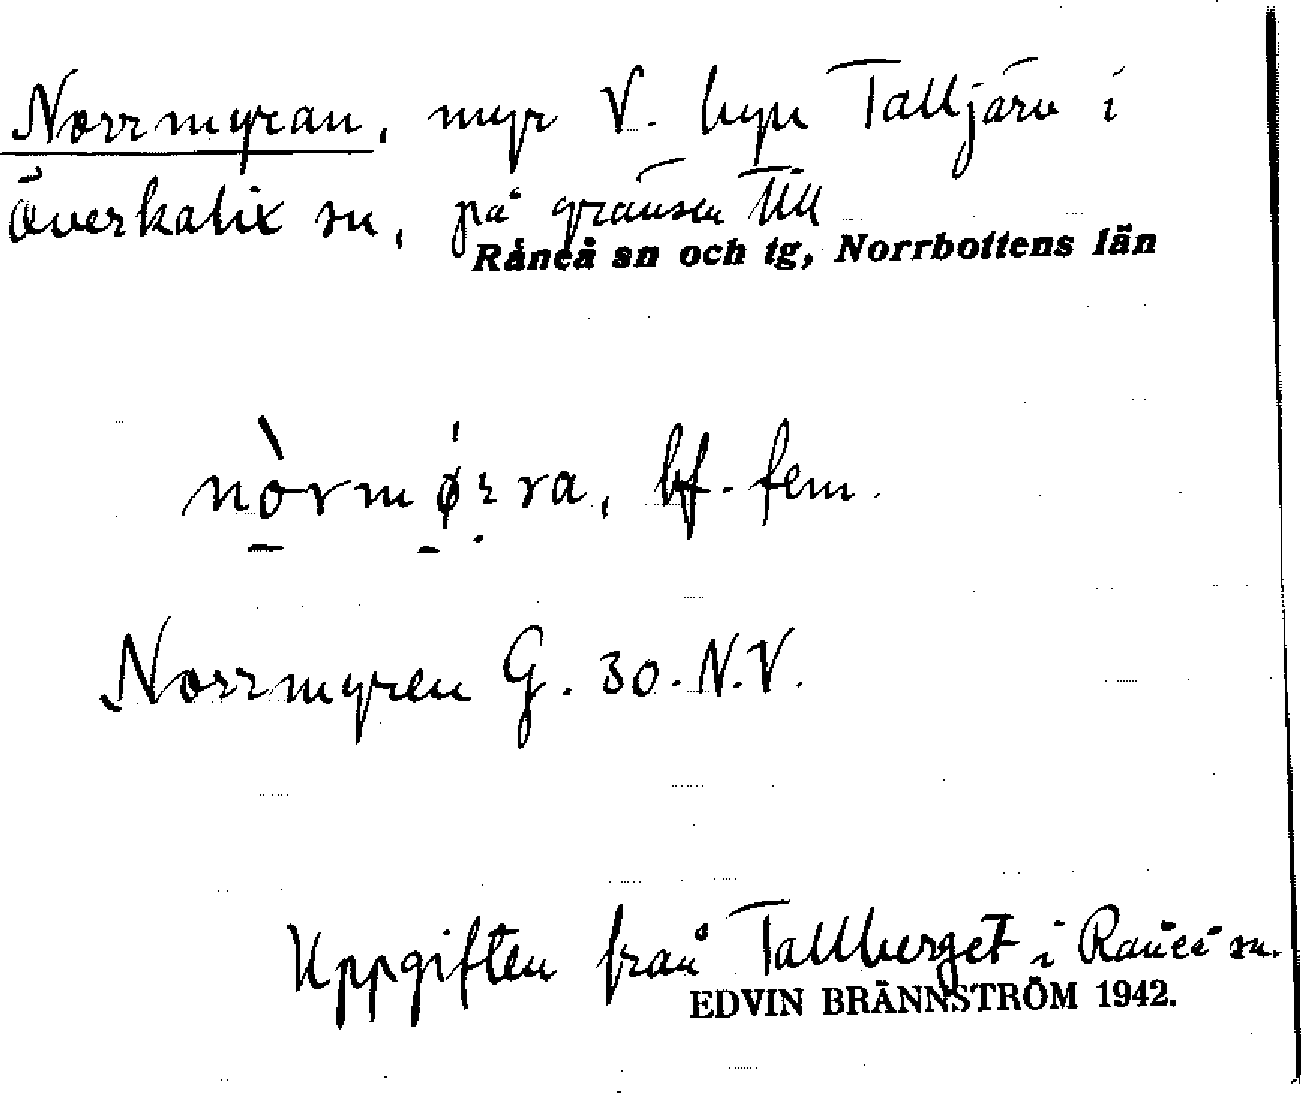 Norrmyran, myr V. byn Talljärv i
Överkalix sn, på gränsen till
Råneå sn och tg, Norrbottens län
bf. fem.
Norrmyren G. 30. N.V.
Uppgiften från Tallberget i Råneå sn.
EDVIN BRÄNNSTRÖM 1942.